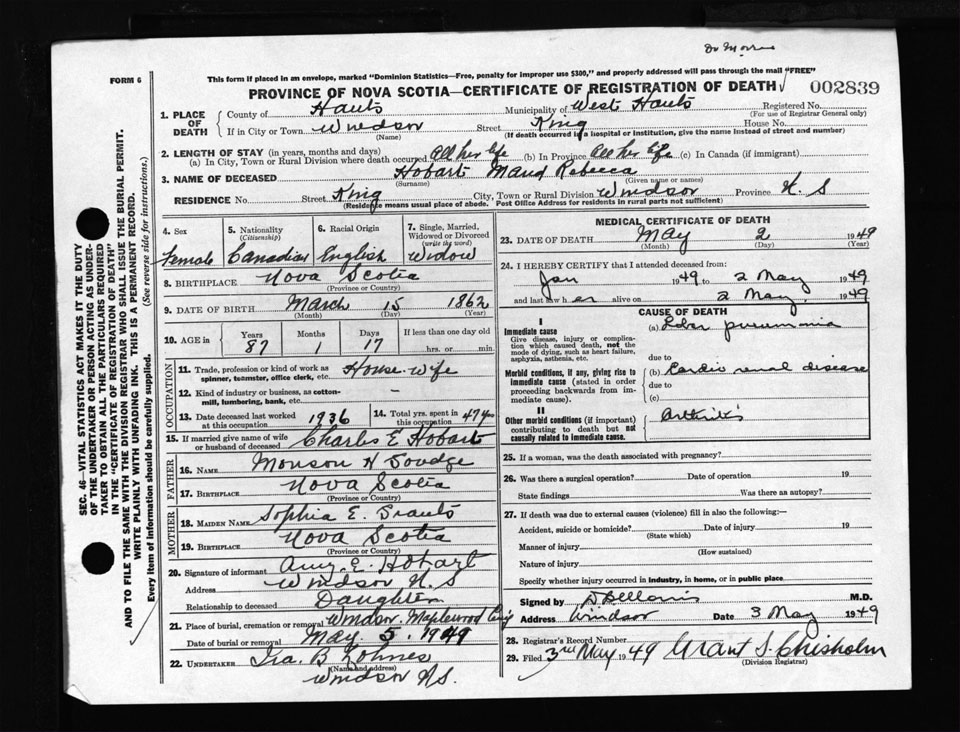 Dr Morris
FORM 6
This form if placed in an envelope, marked "Dominion Statistics—Free, penalty for improper use $300," and properly addressed will pass through the mail "FREE"
PROVINCE OF NOVA SCOTIA—CERTIFICATE OF REGISTRATION OF DEATH 002839
1. PLACE OF DEATH
County of Hants Municipality of West Hants Registered No.
(For use of Registrar General only)
If in City or Town Windsor Street King House No.
(Name) (If death occurred in a hospital or institution, give the name instead of street and number)
2. LENGTH OF STAY (in years, months and days)
(a) In City, Town or Rural Division where death occurred All her life (b) In Province All her life (c) In Canada (if immigrant)
3. NAME OF DECEASED Hobart Maud Rebecca
(Surname) (Given name or names)
RESIDENCE No. Street King City, Town or Rural Division Windsor Province N. S
(Residence means usual place of abode. Post Office Address for residents in rural parts not sufficient)
4. Sex 5. Nationality (Citizenship) 6. Racial Origin 7. Single, Married, Widowed or Divorced (write the word)
Female Canadian English Widow
8. BIRTHPLACE Nova Scotia
(Province or Country)
9. DATE OF BIRTH March 15 1862
(Month) (Day) (Year)
10. AGE in Years Months Days If less than one day old
87 1 17 hrs. or min.
OCCUPATION
11. Trade, profession or kind of work as spinner, teamster, office clerk, etc. House-wife
12. Kind of industry or business, as cotton-mill, lumbering, bank, etc. –
13. Date deceased last worked at this occupation 1936 14. Total yrs. spent in this occupation 49 yrs
15. If married give name of wife or husband of deceased Charles E Hobart
FATHER
16. NAME Monson H
17. BIRTHPLACE Nova Scotia
(Province or Country)
MOTHER
18. MAIDEN NAME Sophia E.
19. BIRTHPLACE Nova Scotia
(Province or Country)
20. Signature of informant Amy. E. Hobart
Address Windsor N. S
Relationship to deceased Daughter
21. Place of burial, cremation or removal Windsor. Maplewood Cem'y
Date of burial or removal May 5. 1949
22. UNDERTAKER Ira. B Lohnes
(Name and address)
Windsor N S.
MEDICAL CERTIFICATE OF DEATH
23. DATE OF DEATH May 2 1949
(Month) (Day) (Year)
24. I HEREBY CERTIFY that I attended deceased from:
Jan 1949 to 2 May 1949
and last saw her alive on 2 May, 1949
CAUSE OF DEATH
I
Immediate cause
Give disease, injury or complication which caused death, not the mode of dying, such as heart failure, asphyxia, asthenia, etc.
(a) Lobar pneumonia
due to
Morbid conditions, if any, giving rise to immediate cause (stated in order proceeding backwards from immediate cause).
(b) Cardio renal disease
due to
(c)
II
Other morbid conditions (if important) contributing to death but not causally related to immediate cause.
Arthritis
25. If a woman, was the death associated with pregnancy?
26. Was there a surgical operation? Date of operation 19
State findings Was there an autopsy?
27. If death was due to external causes (violence) fill in also the following:—
Accident, suicide or homicide? Date of injury 19
(State which)
Manner of injury
(How sustained)
Nature of injury
Specify whether injury occurred in industry, in home, or in public place
Signed by Morris M.D.
Address Windsor Date 3 May 1949
28. Registrar's Record Number
29. Filed 3rd May 1949 Grant S. Chisholm
(Division Registrar)
SEC. 46—VITAL STATISTICS ACT MAKES IT THE DUTY
OF THE UNDERTAKER OR PERSON ACTING AS UNDER-
TAKER TO OBTAIN ALL THE PARTICULARS REQUIRED
IN THE "CERTIFICATE OF REGISTRATION OF DEATH"
AND TO FILE THE SAME WITH THE DIVISION REGISTRAR WHO SHALL ISSUE THE BURIAL PERMIT.
WRITE PLAINLY WITH UNFADING INK. THIS IS A PERMANENT RECORD.
Every item of information should be carefully supplied. (See reverse side for instructions.)